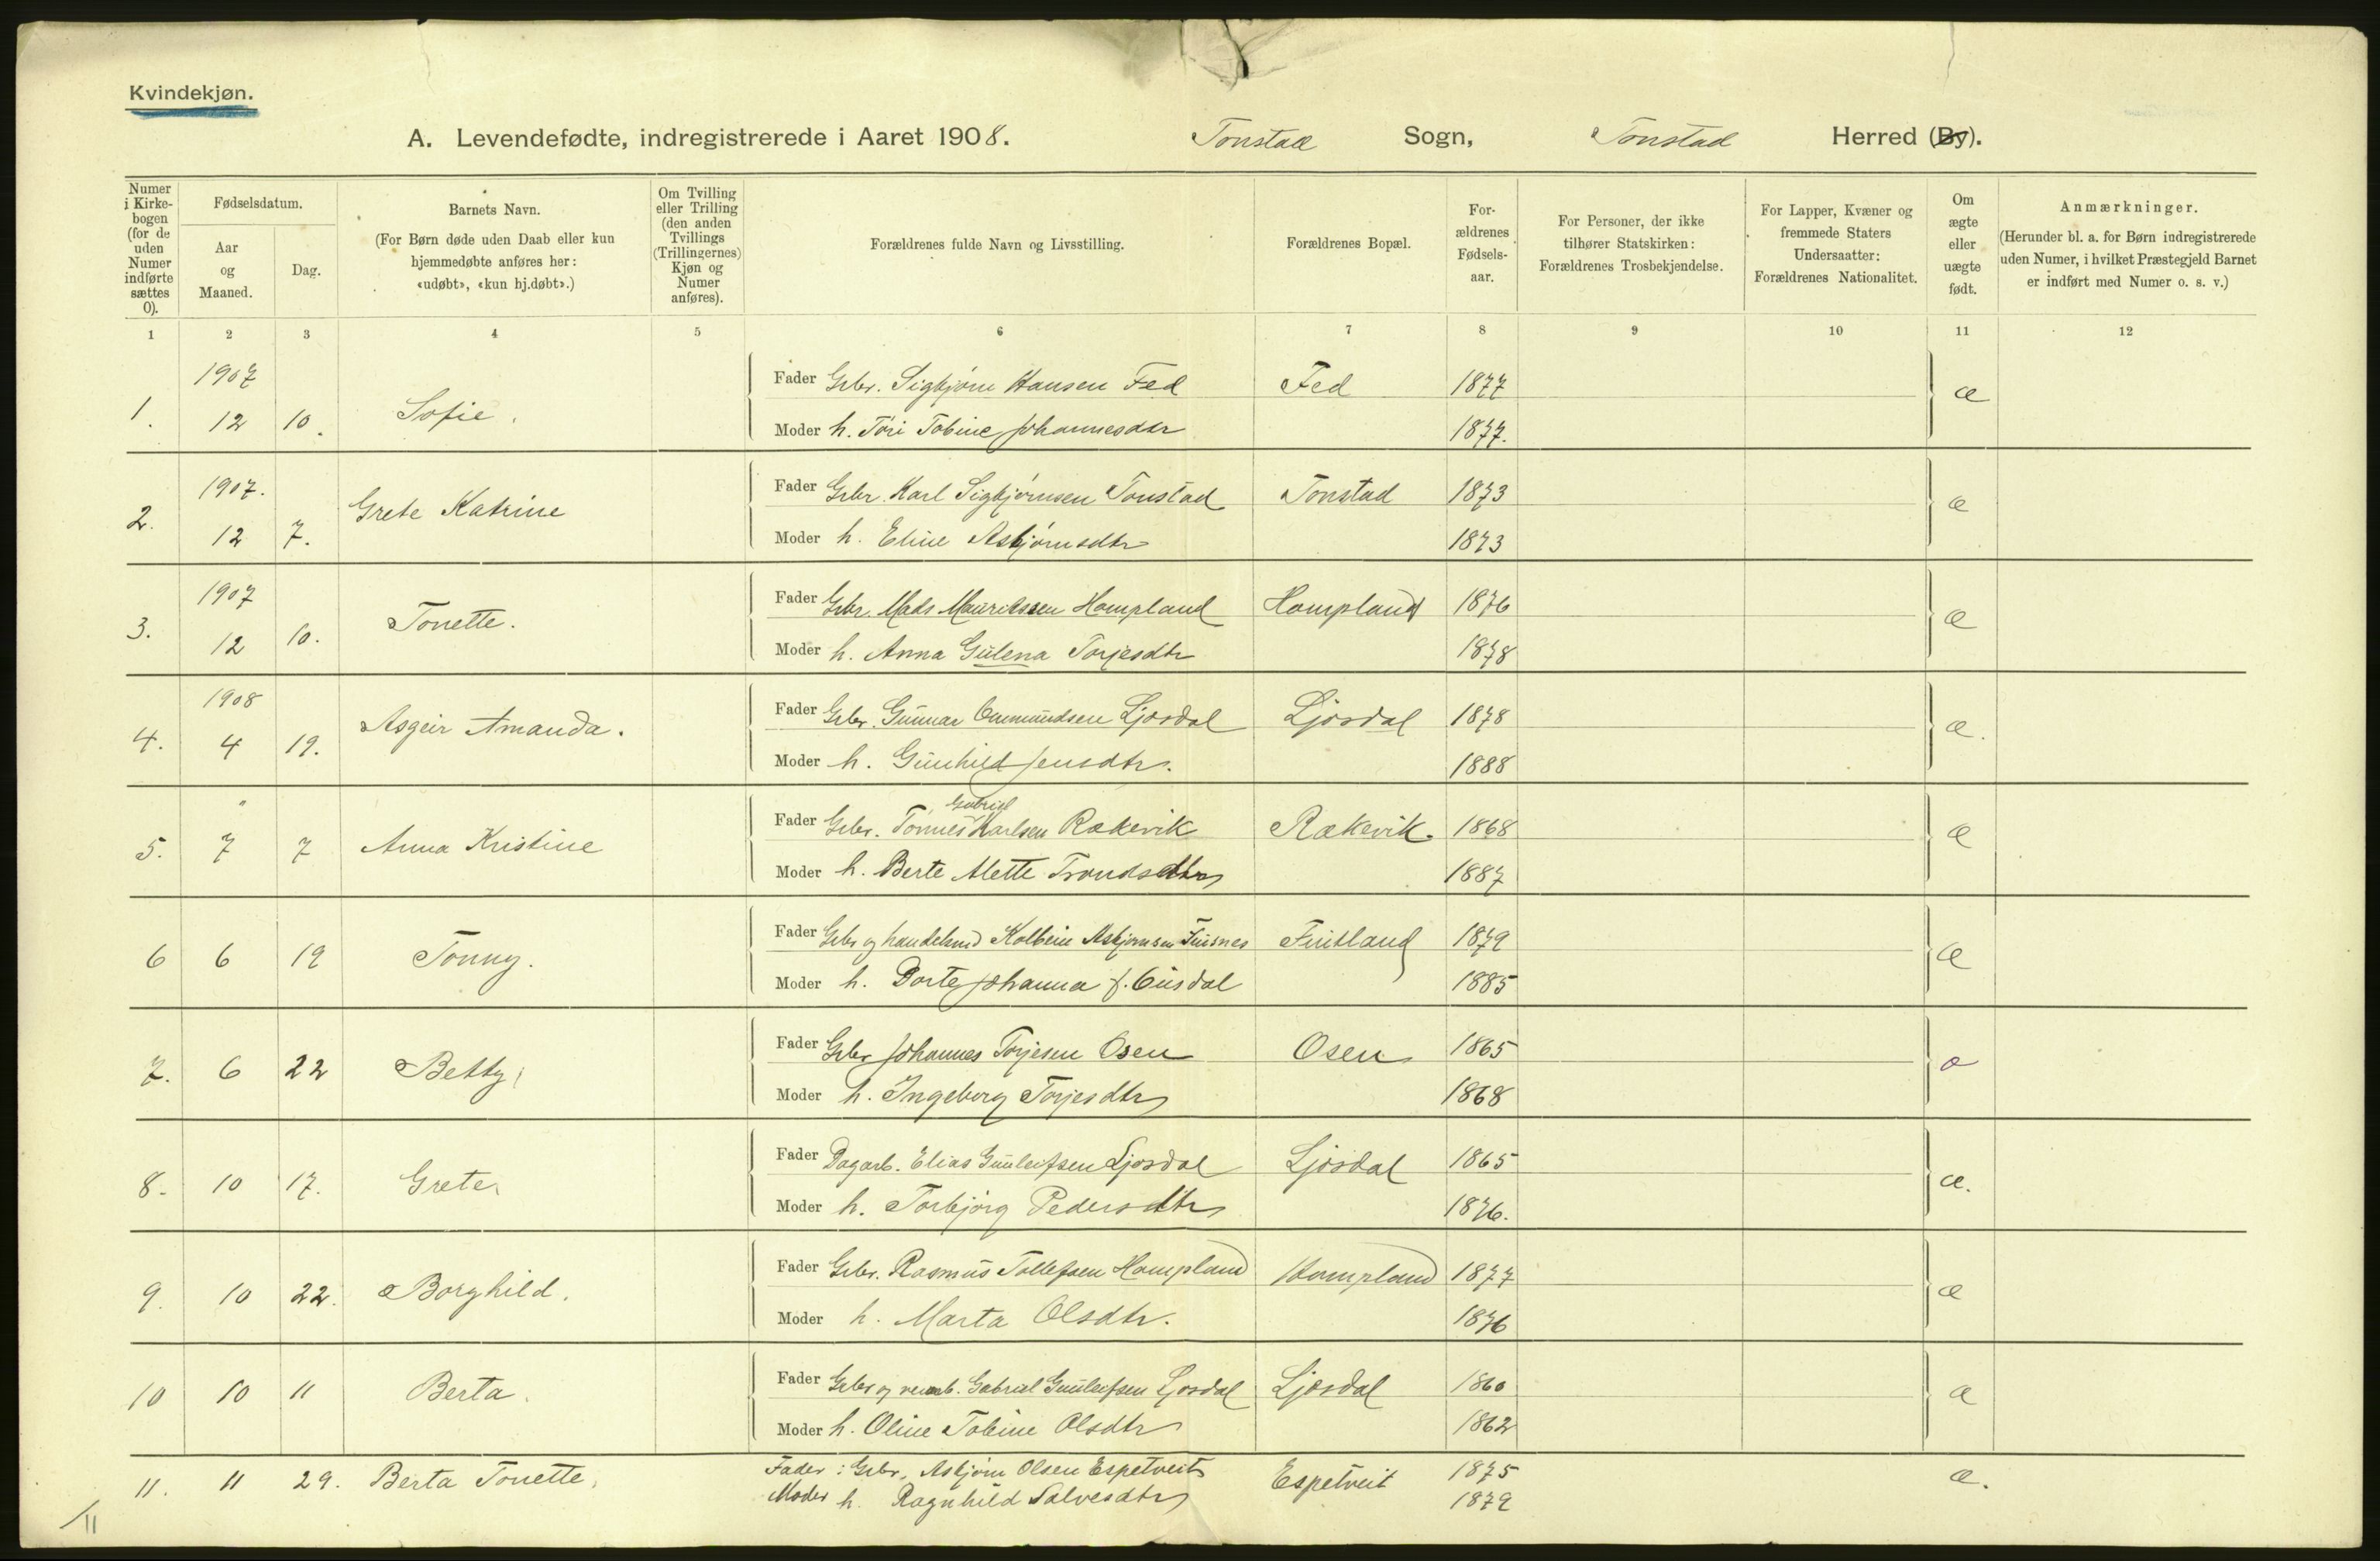 Kvindekjøn.
A. Levendefødte, indregistrerede i Aaret 1908. Tonstad Sogn, Tonstad Herred (By).
Numer i Kirkebogen (for de uden Numer indførte sættes 0).
Fødselsdatum.
Aar og Maaned.
Dag.
Barnets Navn.
(For Børn døde uden Daab eller kun hjemmedøbte anføres her: «udøbt», «kun hj.døbt».)
Om Tvilling eller Trilling (den anden Tvillings (Trillingernes) Kjøn og Numer anføres).
Forældrenes fulde Navn og Livsstilling.
Forældrenes Bopæl.
For-ældrenes Fødsels-aar.
For Personer, der ikke tilhører Statskirken: Forældrenes Trosbekjendelse.
For Lapper, Kvæner og fremmede Staters Undersaatter: Forældrenes Nationalitet.
Om ægte eller uægte født.
Anmærkninger.
(Herunder bl. a. for Børn indregistrerede uden Numer, i hvilket Præstegjeld Barnet er indført med Numer o. s. v.)
1 2 3 4 5 6 7 8 9 10 11 12
1907
Fader Grbr. Sigbjørn Hansen Fed Fed 1877 æ
1. 12 10. Sofie.
Moder h. Tori Tobine Johannesdtr 1877.
1907.
Fader Grbr. Karl Sigbjørnsen Tonstad Tonstad 1873 æ
2. 12 7. Grete Katrine
Moder h. Eline Asbjørnsdtr 1873
1907
Fader Grbr. Mads Mauritssen Hompland Hompland 1876 æ
3. 12 10. Tonette.
Moder h. Anna Gulena Torjesdtr 1878
1908
Fader Grbr. Gunnar Ommundsen Ljosdal Ljosdal 1878 æ.
4. 4 19. Asgeir Amanda.
Moder h. Gunhild Jensdtr. 1888
"
Gabriel
Fader Grbr. Tønnes Karlsen Rækevik Rækevik. 1868 æ
5. 7 7 Anna Kristine
Moder h. Berte Alette Trondsdtr 1887
Fader Grbr og handelsmd Kolbein Asbjørnsen Fuisnes Fintland 1879 æ
6 6 19 Tonny.
Moder h. Dorte Johanna f. Ousdal 1885
Fader Grbr Johannes Torjesen Osen Osen 1865 æ
7. 6 22 Betty
Moder h. Ingeborg Torjesdtr 1868
Fader Dagarb. Elias Gunleifsen Ljosdal Ljosdal 1865 æ.
8. 10 17. Grete
Moder h. Torbjørg Pedersdtr 1876.
Fader Grbr. Rasmus Tollefsen Hompland Hompland 1877 æ
9. 10 22. Borghild.
Moder h. Marta Olsdtr. 1876
Fader Grbr og Gabriel Gunleifsen Ljosdal Ljosdal 1860 æ
10 10 11 Berta.
Moder h. Oline Tobine Olsdtr 1862
Fader: Grbr. Asbjørn Olsen Espetveit Espetveit 1875 æ.
11. 11 29. Berta Tonette.
Moder h. Ragnhild Salvesdtr 1879
/11